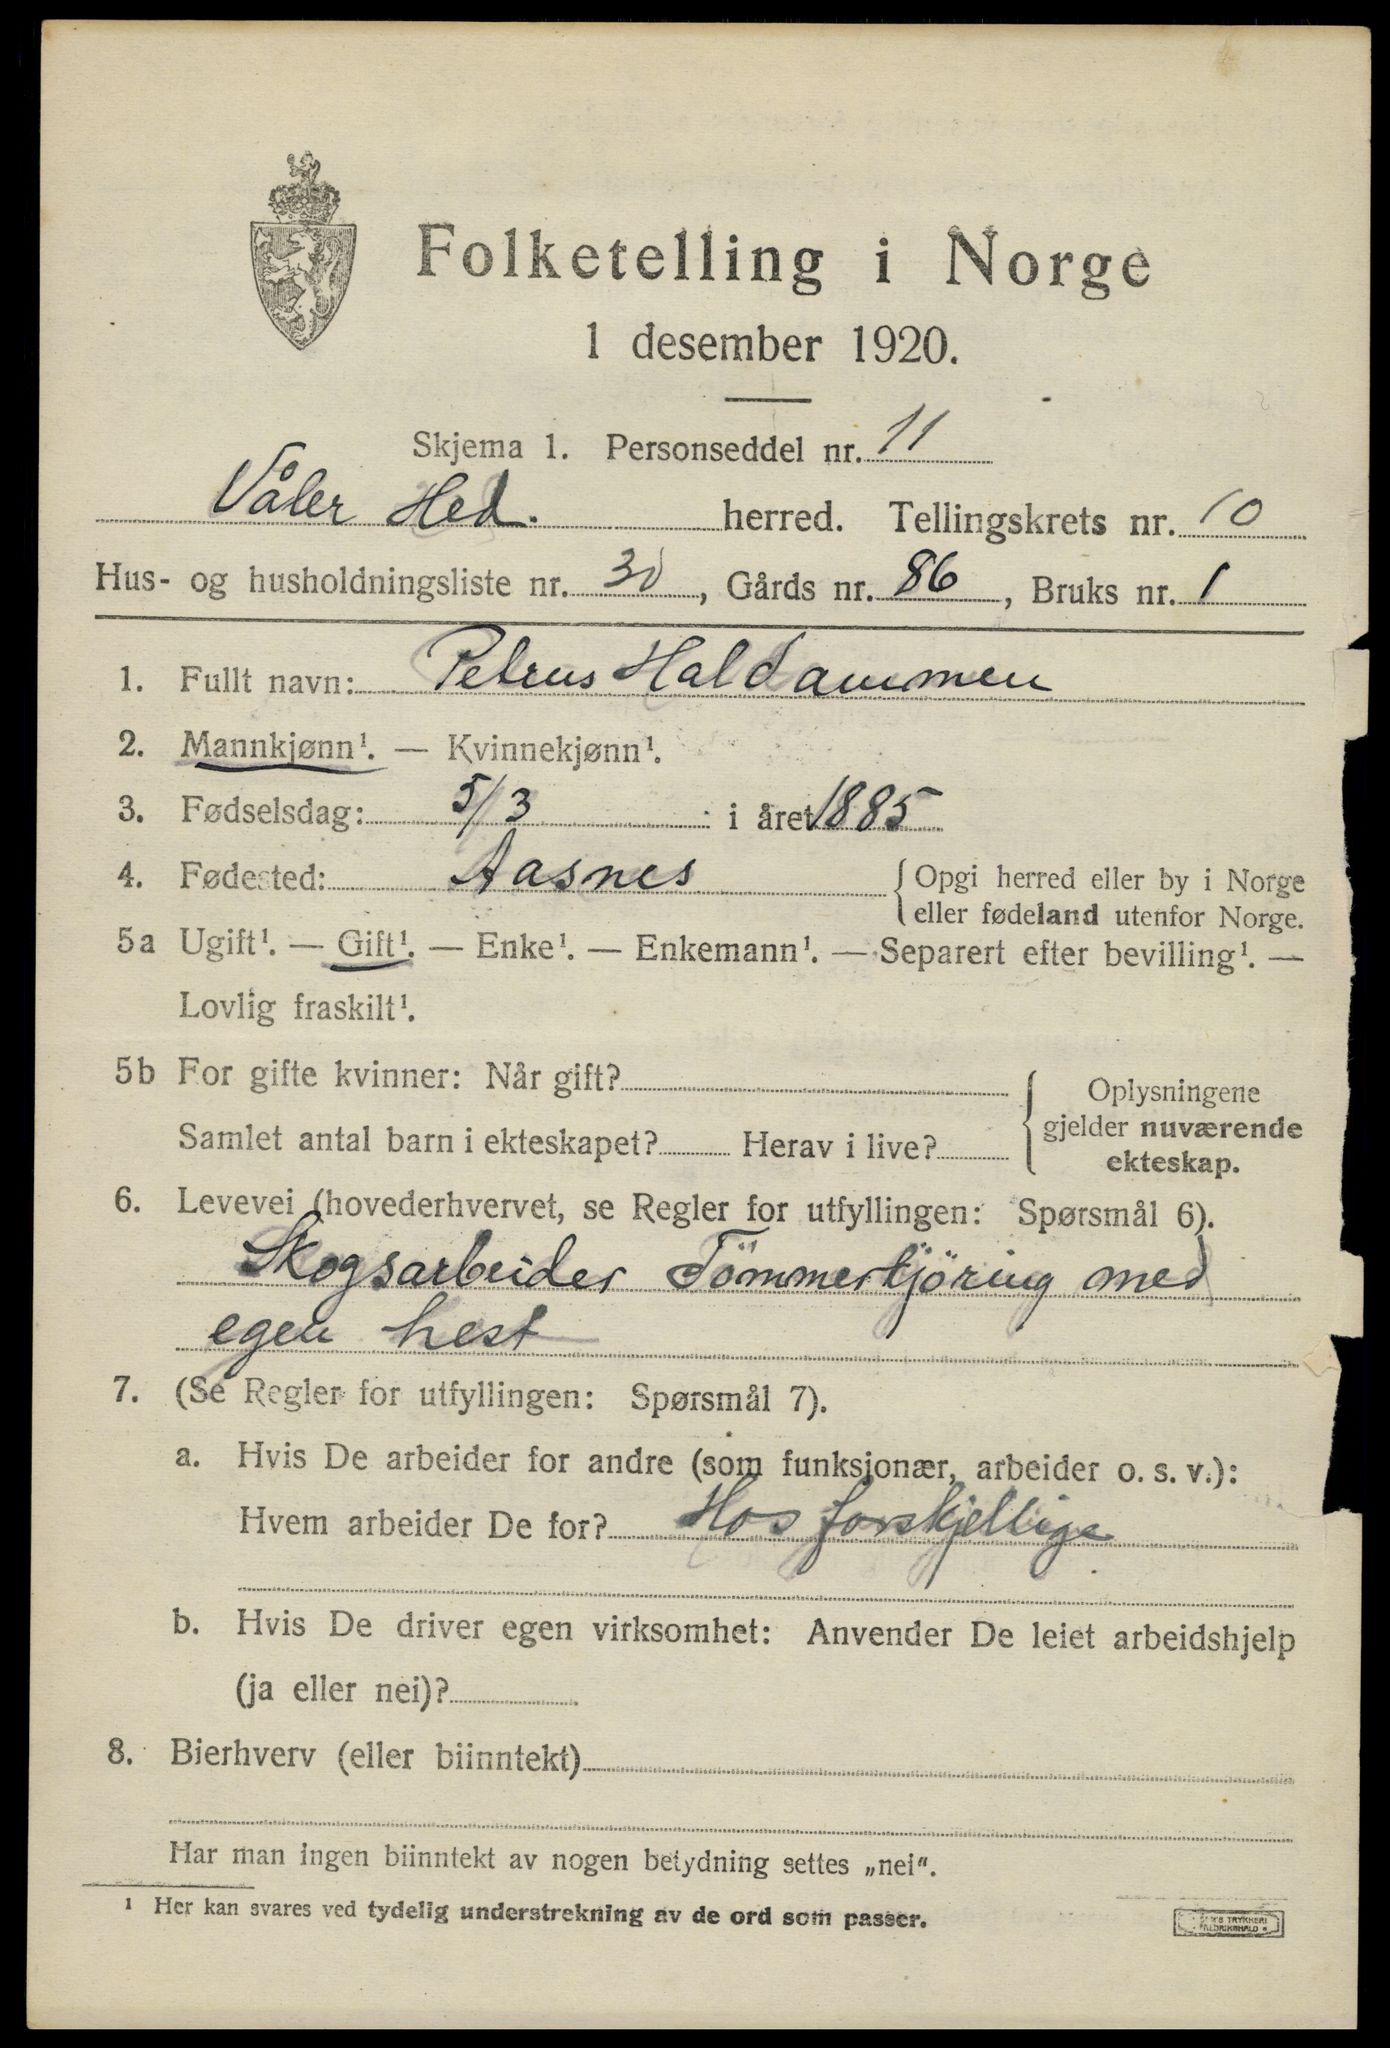 Folketelling i Norge
1 desember 1920.
Skjema 1. Personseddel nr. 11
Våler Hed. herred. Tellingskrets nr. 10
Hus- og husholdningsliste nr. 30, Gårds nr. 86, Bruks nr. 1
1. Fullt navn: Petrus Haldammen
2. Mannkjønn¹. — Kvinnekjønn¹.
3. Fødselsdag: 5/3 i året 1885
4. Fødested: Aasnes { Opgi herred eller by i Norge
eller fødeland utenfor Norge.
5a Ugift¹. — Gift¹. — Enke¹. — Enkemann¹. — Separert efter bevilling¹. —
Lovlig fraskilt¹.
5b For gifte kvinner: Når gift?
Samlet antal barn i ekteskapet? Herav i live?
Oplysningene
gjelder nuværende
ekteskap.
6. Levevei (hovederhvervet, se Regler for utfyllingen: Spørsmål 6).
Skogsarbeider Tömmerkjöring med
egen hest
7. (Se Regler for utfyllingen: Spørsmål 7).
a. Hvis De arbeider for andre (som funksjonær, arbeider o. s. v.):
Hvem arbeider De for? Hos forskjellige
b. Hvis De driver egen virksomhet: Anvender De leiet arbeidshjelp
(ja eller nei)?
8. Bierhverv (eller biinntekt)
Har man ingen biinntekt av nogen betydning settes „nei".
¹ Her kan svares ved tydelig understrekning av de ord som passer.
TRYKKERI
FREDRIKSHALD